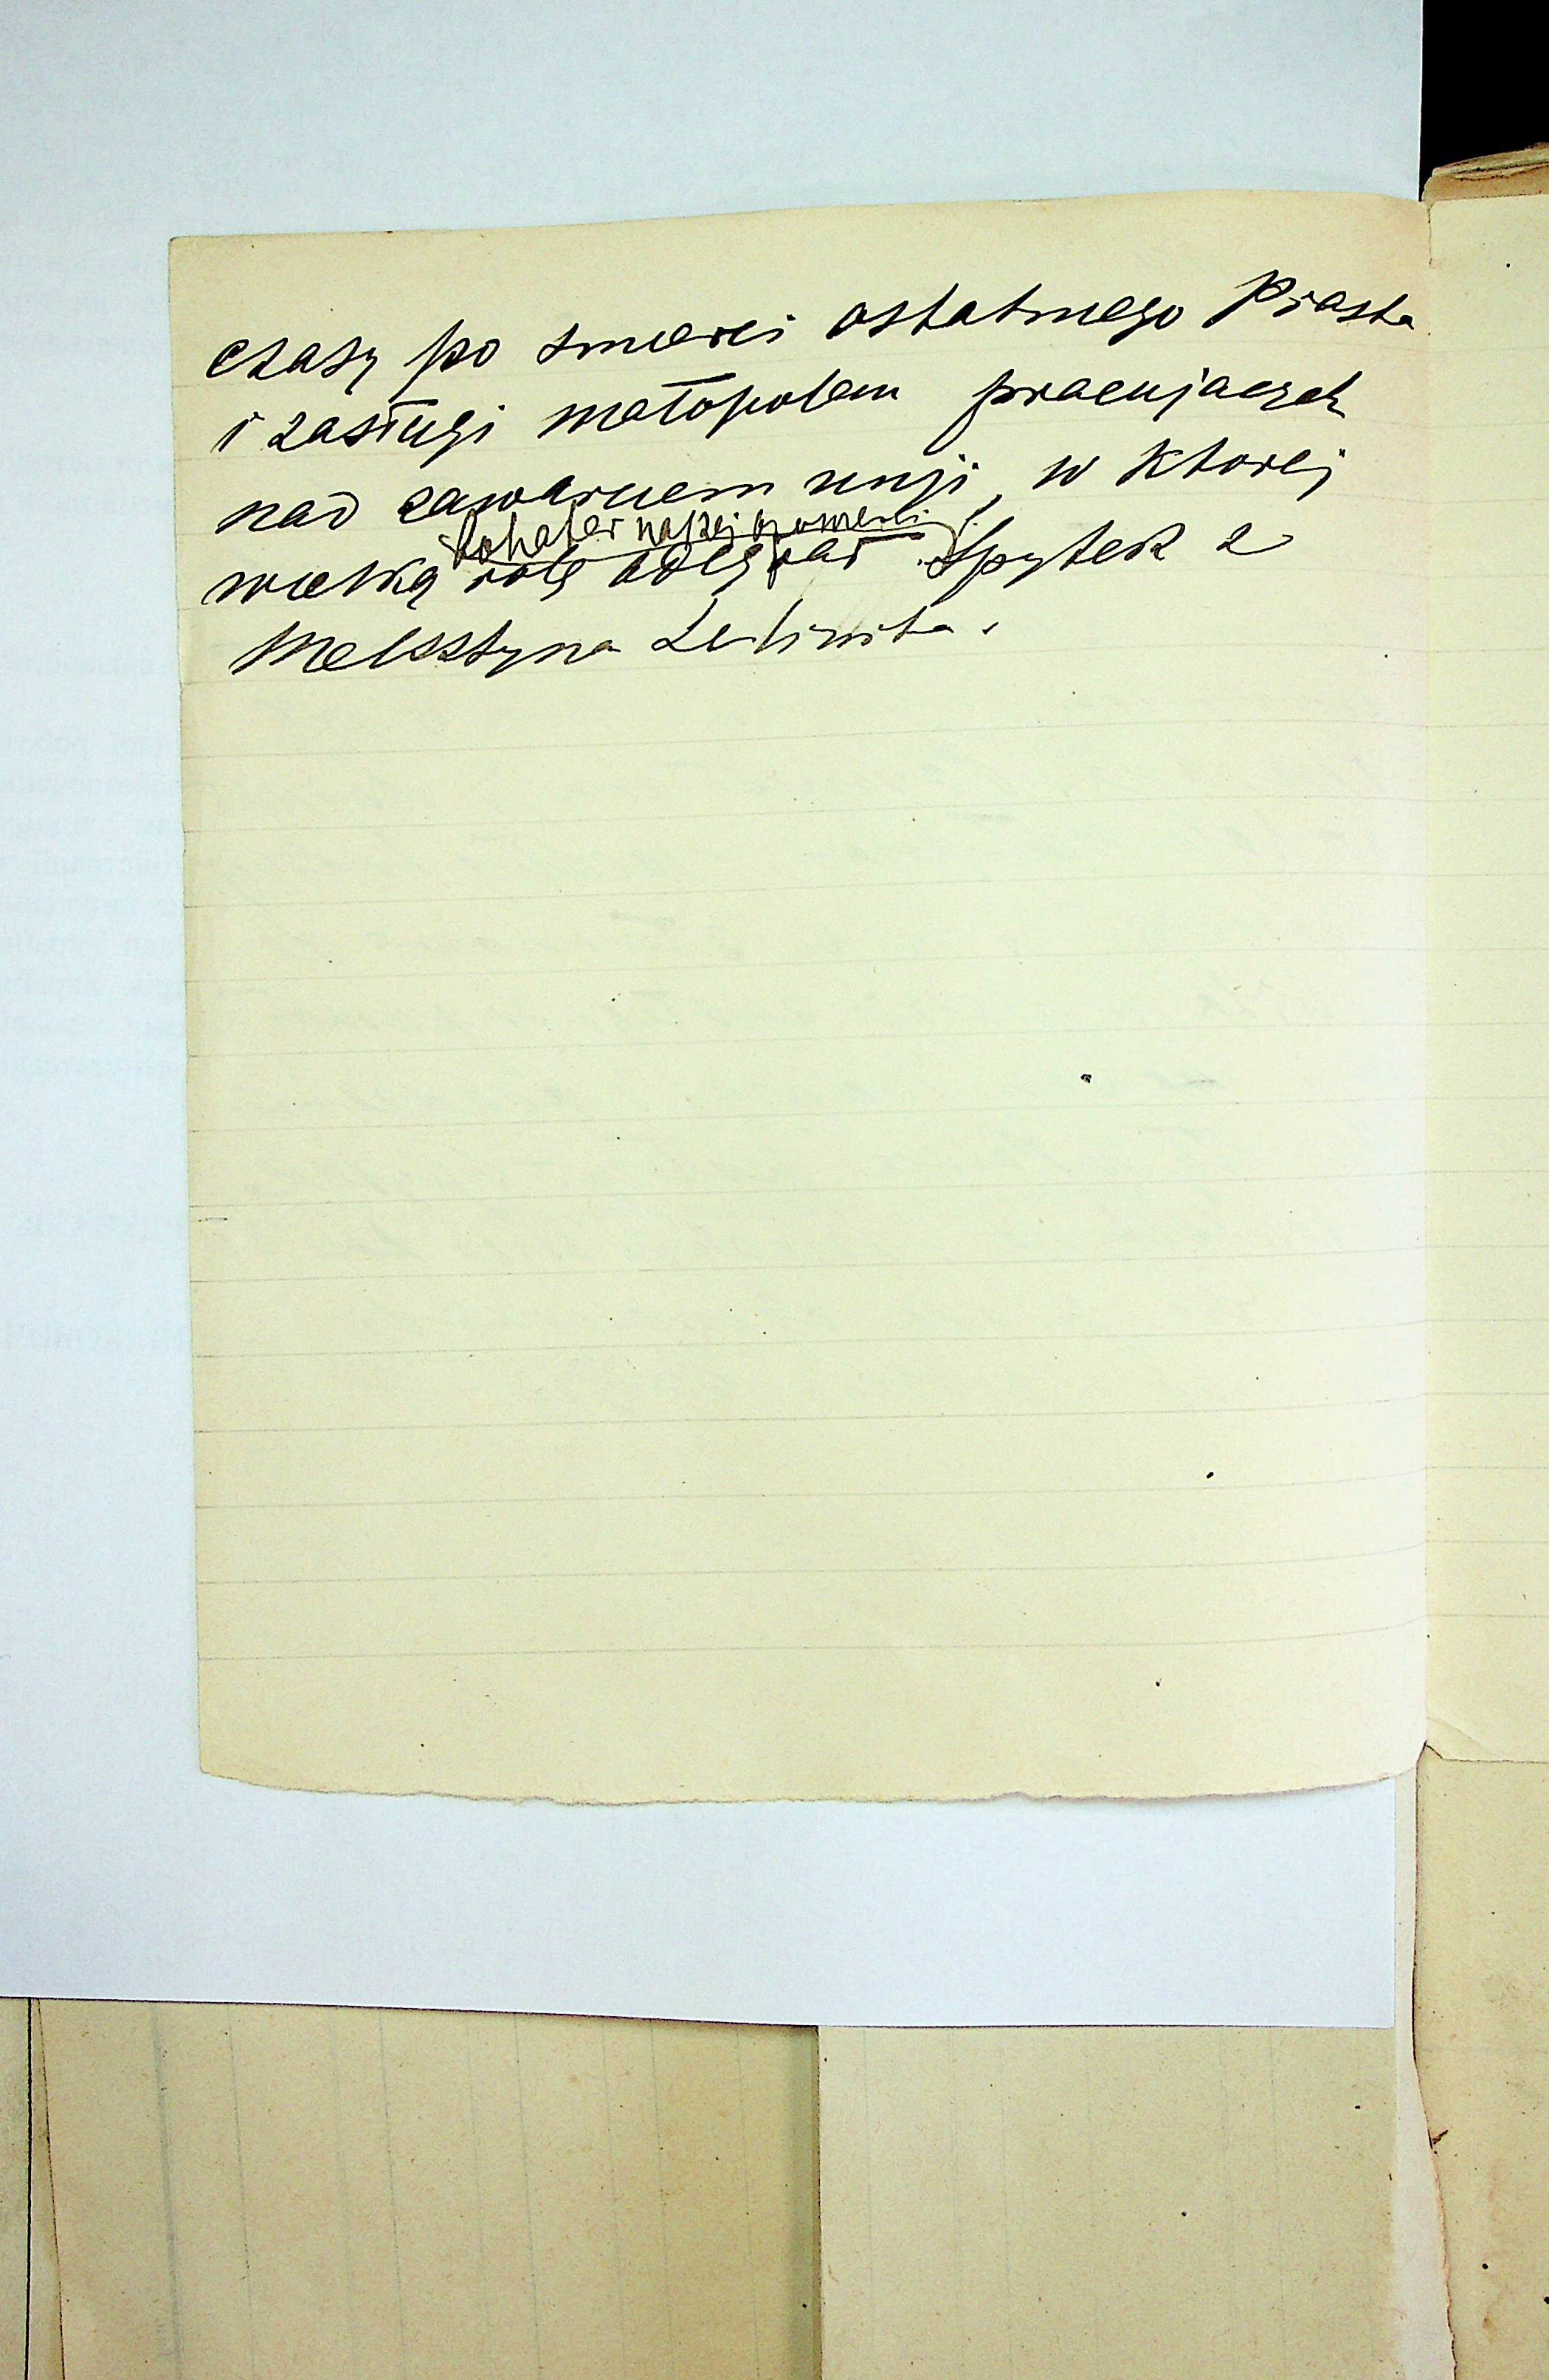 czasy po śmierci ostatniego Piasta
i zasługi małopolan pracujących
nad zawarciem unji, w ktorej
bohater naszej opowieści
wielką rolę odegrał Spytek z
Melsztyna Leliwita.